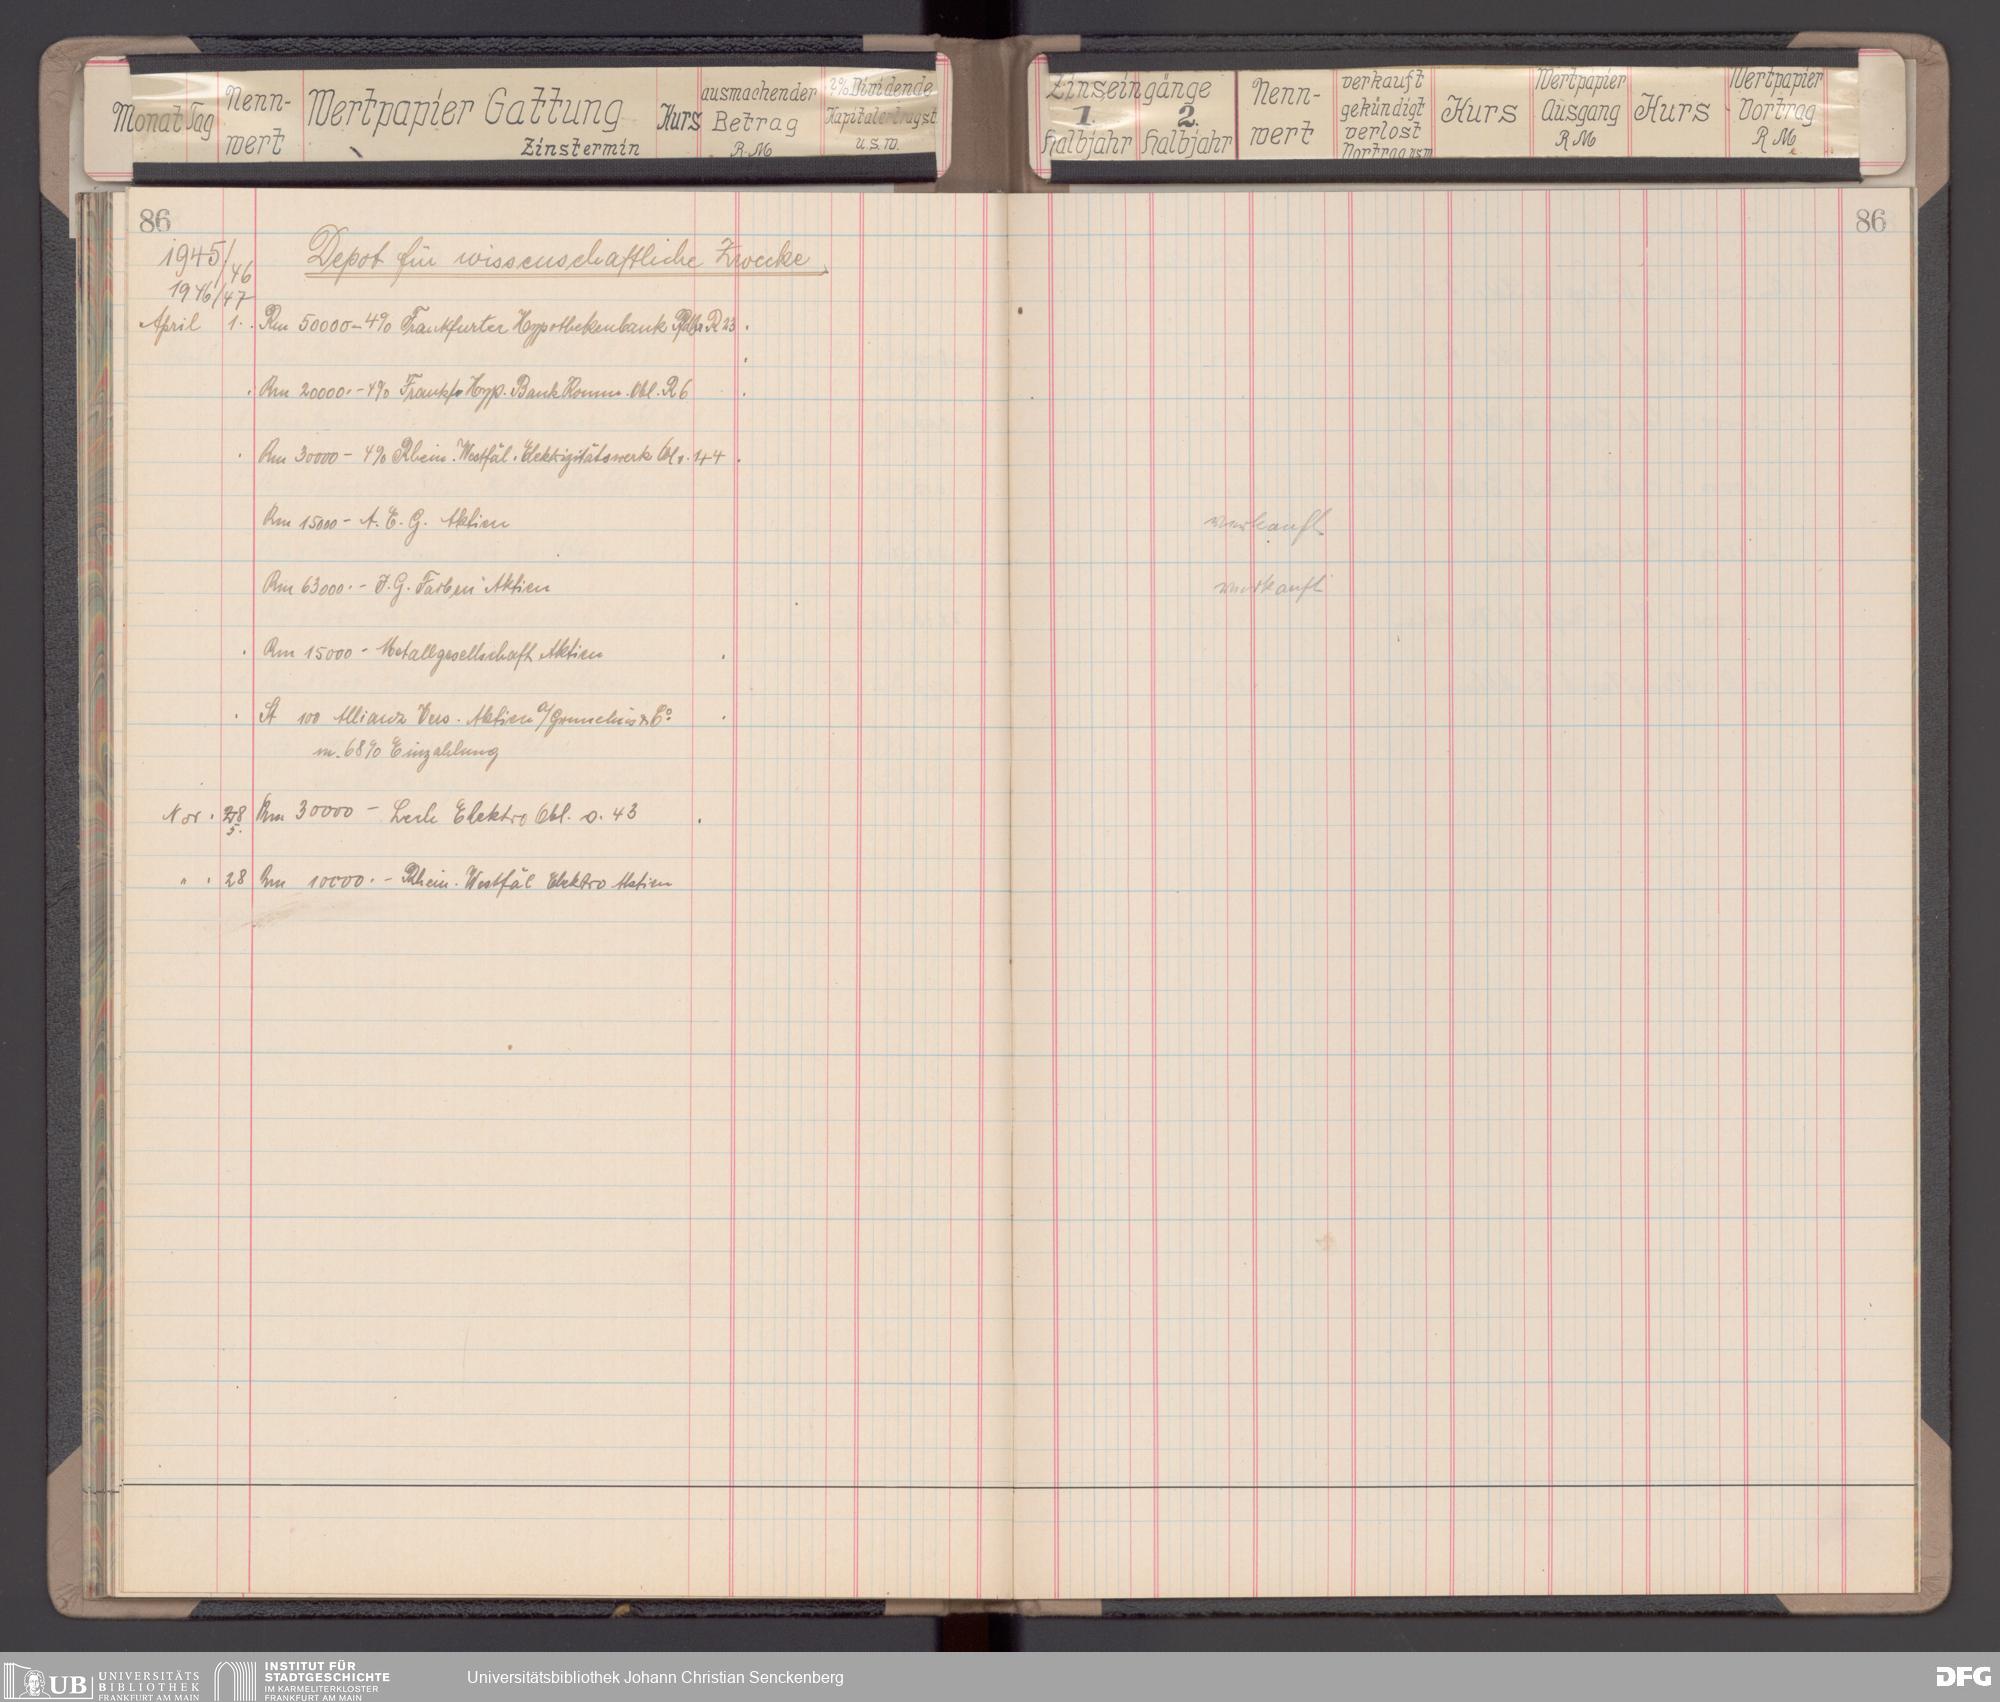 Monat Tag Nenn-wert Wertpapier Gattung Zinstermin Kurs ausmachender Betrag R.M. Dividende Kapitalertragst u.s.w.
Zinseingänge 1. Halbjahr 2. Halbjahr Nenn-wert verkauft gekündigt verlost Vortrag usw Kurs Wertpapier Ausgang R.M. Kurs Wertpapier Vortrag R.M.
86
86
1945/46
Depot für wissenschaftliche Zwecke
1946/47
April 1. Rm 50000-4% Frankfurter Hypothekenbank Pfdbr R 23
Rm 20000.-4% Frankf. Hyp. Bank Komm. Obl. R 6
Rm 30000-4% Rhein. Westfäl. Elektrizitätswerk Obl v.
Rm 15000- A. E. G. Aktien verkauft
Rm 63000.- I. G. Farben Aktien verkauft
Rm 15000- Metallgesellschaft Aktien
St 100 Allianz Vers. Aktien & Co
m. 68% Einzahlung
Nov. 28 Rm 30000- Elektro Obl. v. 43
" . 28 Rm 10000.- Rhein. Westfäl Elektro Aktien
UB UNIVERSITÄTS
BIBLIOTHEK
FRANKFURT AM MAIN
INSTITUT FÜR
STADTGESCHICHTE
IM KARMELITERKLOSTER
FRANKFURT AM MAIN
Universitätsbibliothek Johann Christian Senckenberg
DFG